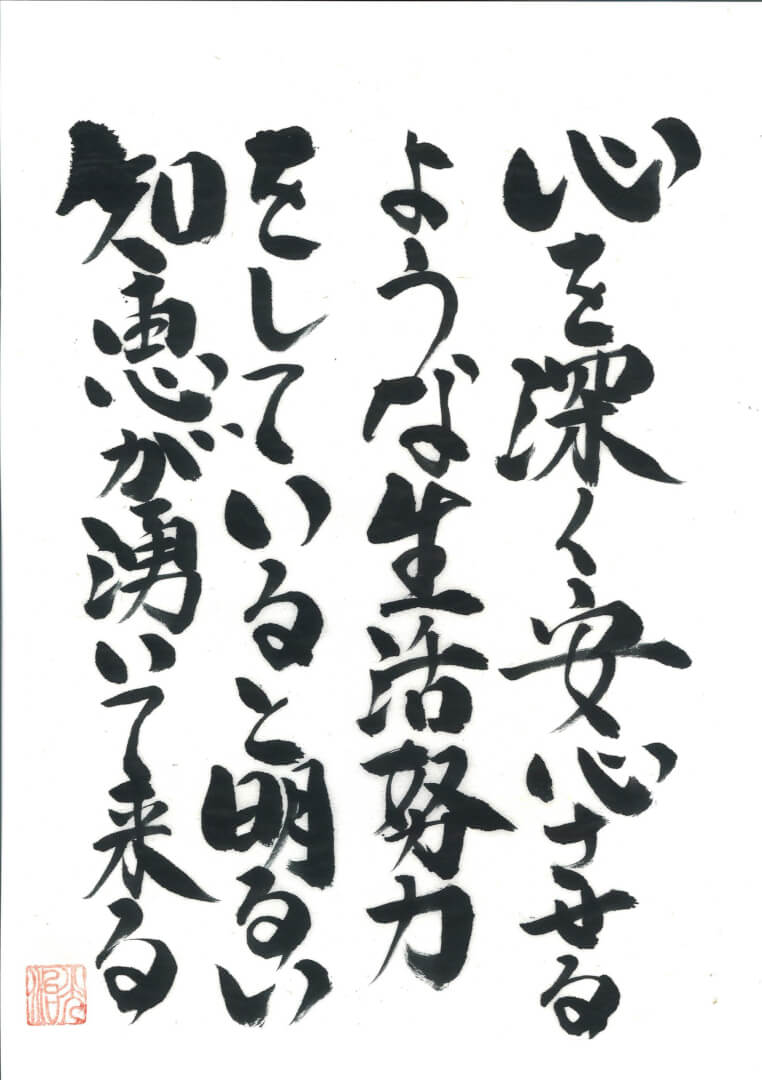 心を深く安心させる
ような生活努力
をしていると明るい
知恵が湧いて来る